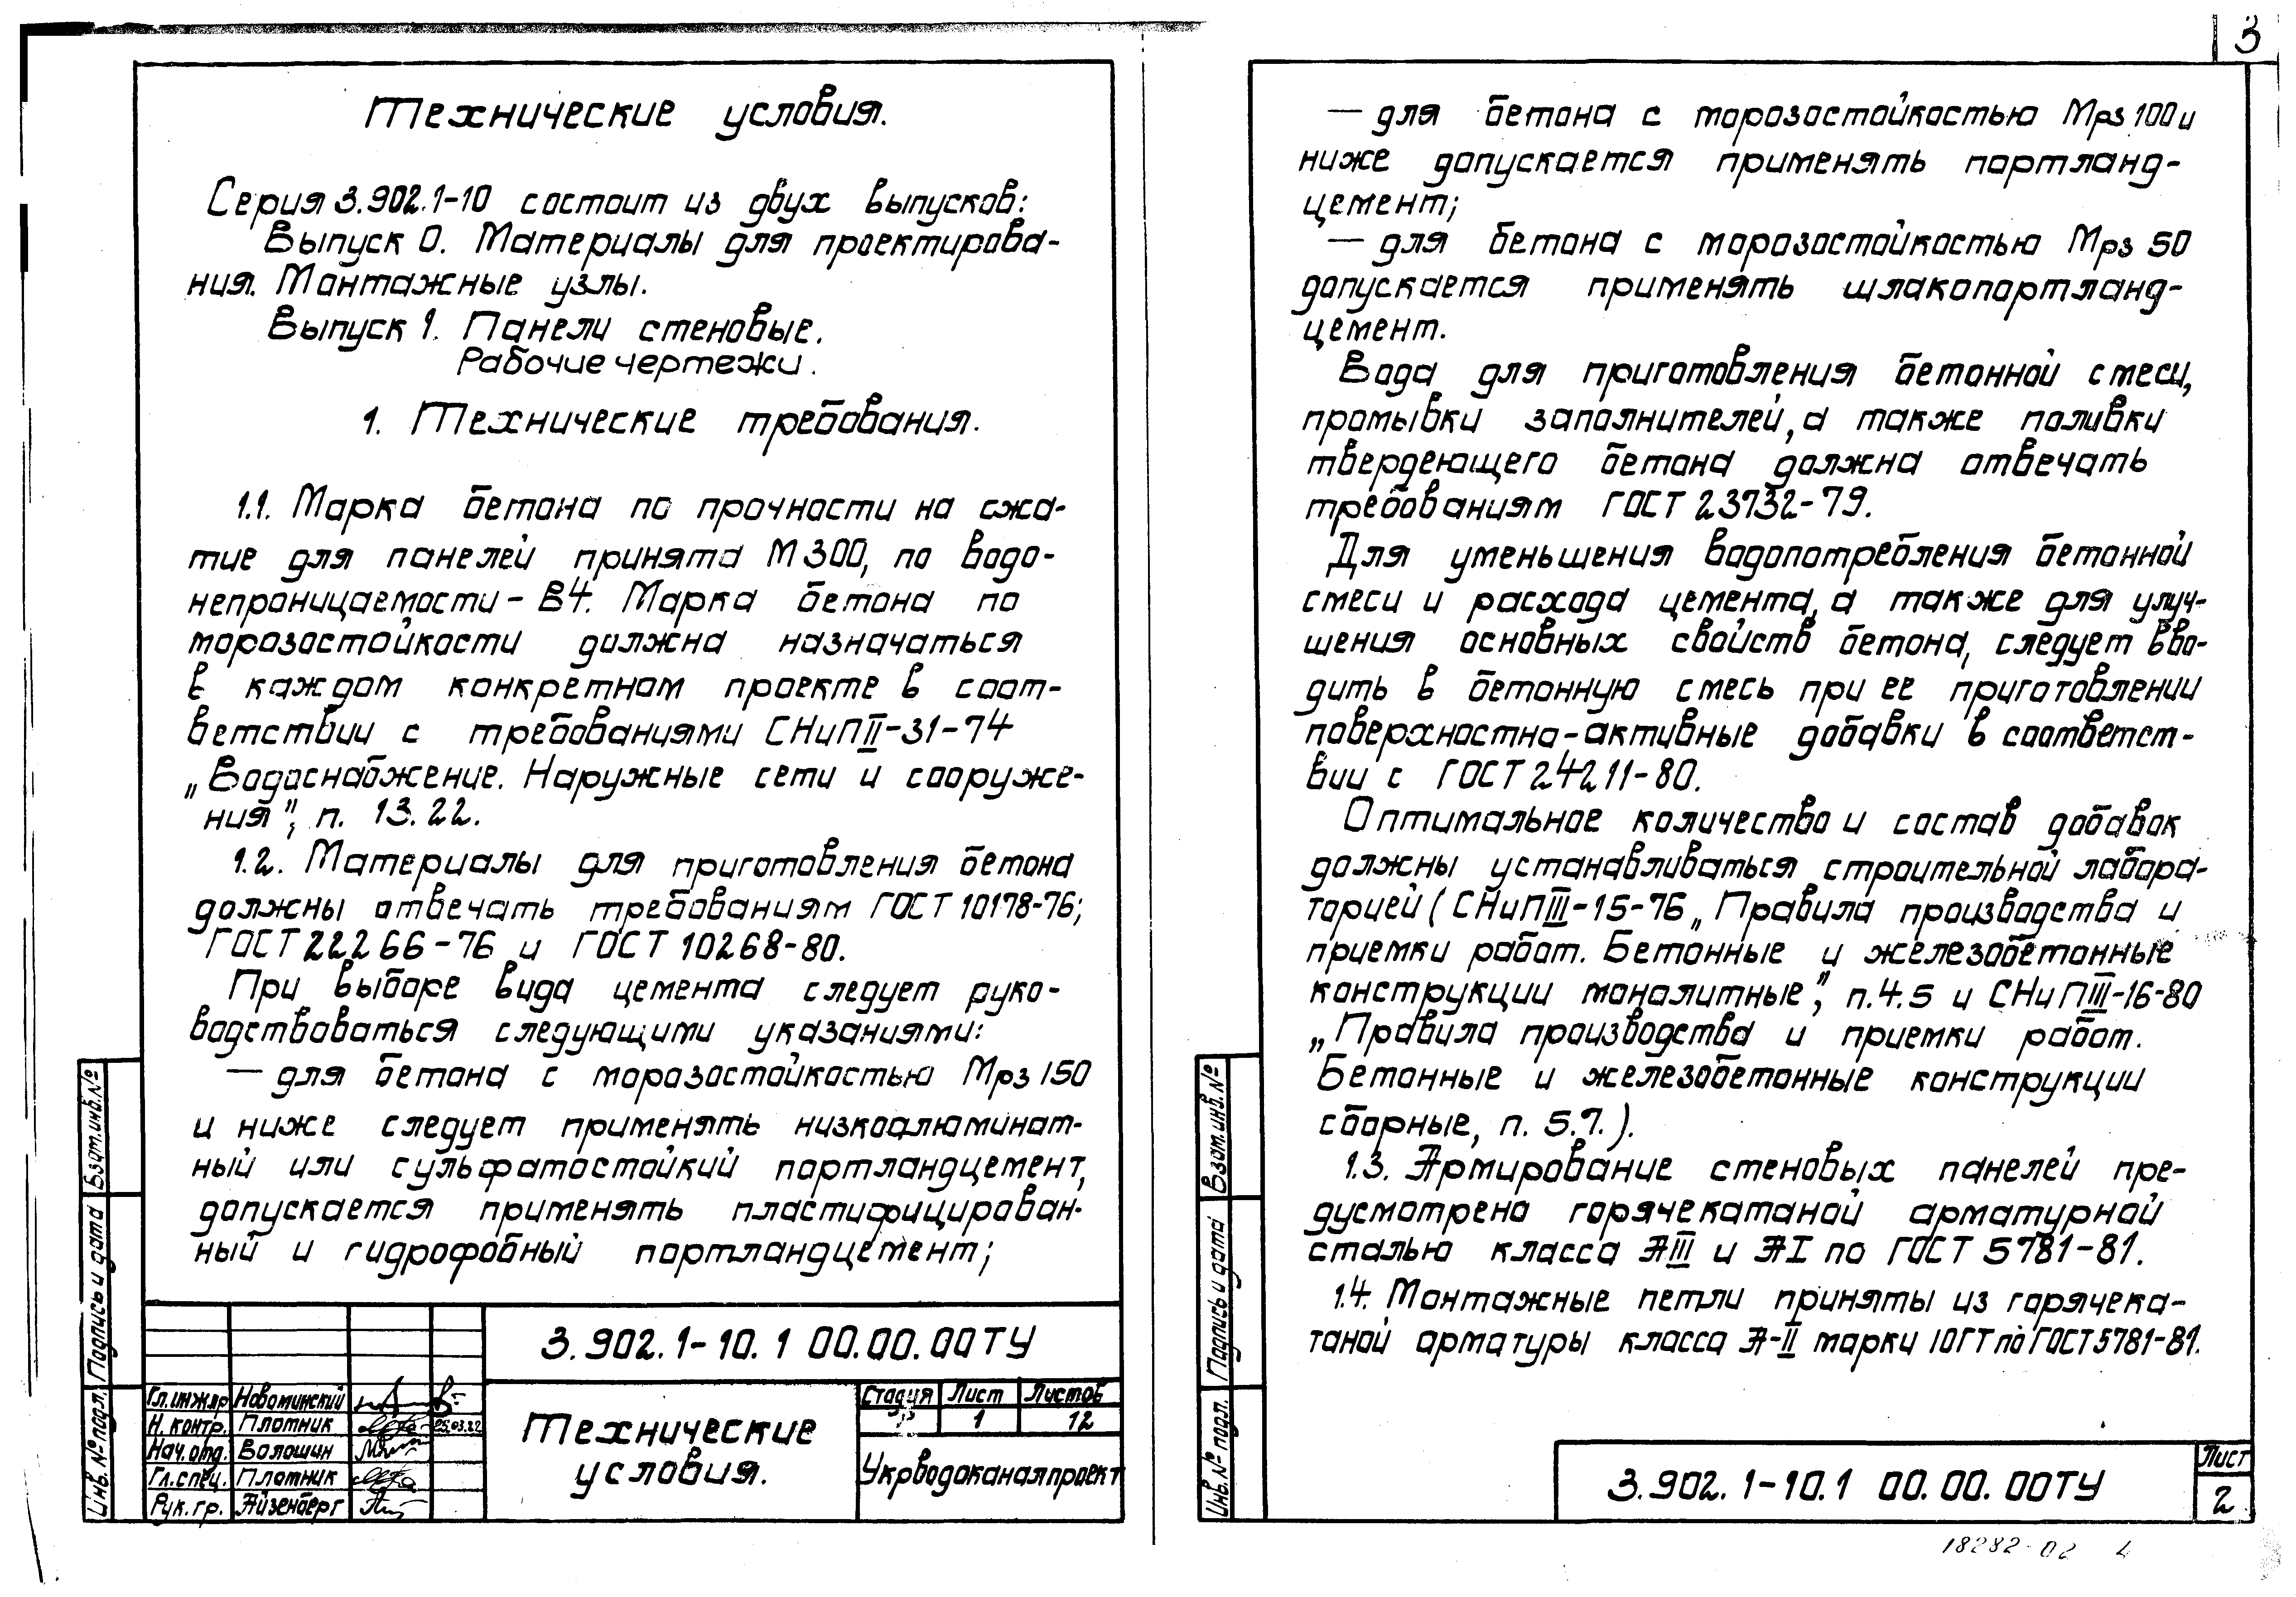 Технические условия.
Серия 3.902.1-10 состоит из двух выпусков:
Выпуск 0. Материалы для проектирова-
ния. Монтажные узлы.
Выпуск 1. Панели стеновые.
Рабочие чертежи.
1. Технические требования.
1.1. Марка бетона по прочности на сжа-
тие для панелей принята М300, по водо-
непроницаемости - В4. Марка бетона по
морозостойкости должна назначаться
в каждом конкретном проекте в соот-
ветствии с требованиями СНиП II-31-74
„Водоснабжение. Наружные сети и сооруже-
ния", п. 13.22.
1.2. Материалы для приготовления бетона
должны отвечать требованиям ГОСТ 10178-76;
ГОСТ 22266-76 и ГОСТ 10268-80.
При выборе вида цемента следует руко-
водствоваться следующими указаниями:
— для бетона с морозостойкостью Мрз 150
и ниже следует применять низкоалюминат-
ный или сульфатостойкий портландцемент,
допускается применять пластифицирован-
ный и гидрофобный портландцемент;
3.902.1-10.1 00.00.00ТУ
Гл.инж.пр Новоминский
Н. контр. Плотник 25.03.82
Нач.отд. Волошин
Гл.спец. Плотник
Рук.гр. Айзенберг
Технические
условия.
Стадия Лист Листов
Р 1 12
Укрводоканалпроект
Взам.инв.№
Подпись и дата
Инв.№ подл.
3
— для бетона с морозостойкостью Мрз 100 и
ниже допускается применять портланд-
цемент;
— для бетона с морозостойкостью Мрз 50
допускается применять шлакопортланд-
цемент.
Вода для приготовления бетонной смеси,
промывки заполнителей, а также поливки
твердеющего бетона должна отвечать
требованиям ГОСТ 23732-79.
Для уменьшения водопотребления бетонной
смеси и расхода цемента, а также для улуч-
шения основных свойств бетона, следует вво-
дить в бетонную смесь при ее приготовлении
поверхностно-активные добавки в соответст-
вии с ГОСТ 24211-80.
Оптимальное количество и состав добавок
должны устанавливаться строительной лабора-
торией (СНиП III-15-76 „Правила производства и
приемки работ. Бетонные и железобетонные
конструкции монолитные", п.4.5 и СНиП III-16-80
„Правила производства и приемки работ.
Бетонные и железобетонные конструкции
сборные, п. 5.7.).
1.3. Армирование стеновых панелей пре-
дусмотрено горячекатаной арматурной
сталью класса АIII и АI по ГОСТ 5781-81.
1.4. Монтажные петли приняты из горячека-
таной арматуры класса А-II марки 10ГТ по ГОСТ 5781-81.
3.902.1-10.1 00.00.00ТУ
Лист
2
Взам.инв.№
Подпись и дата
Инв.№ подл.
18282-02 4